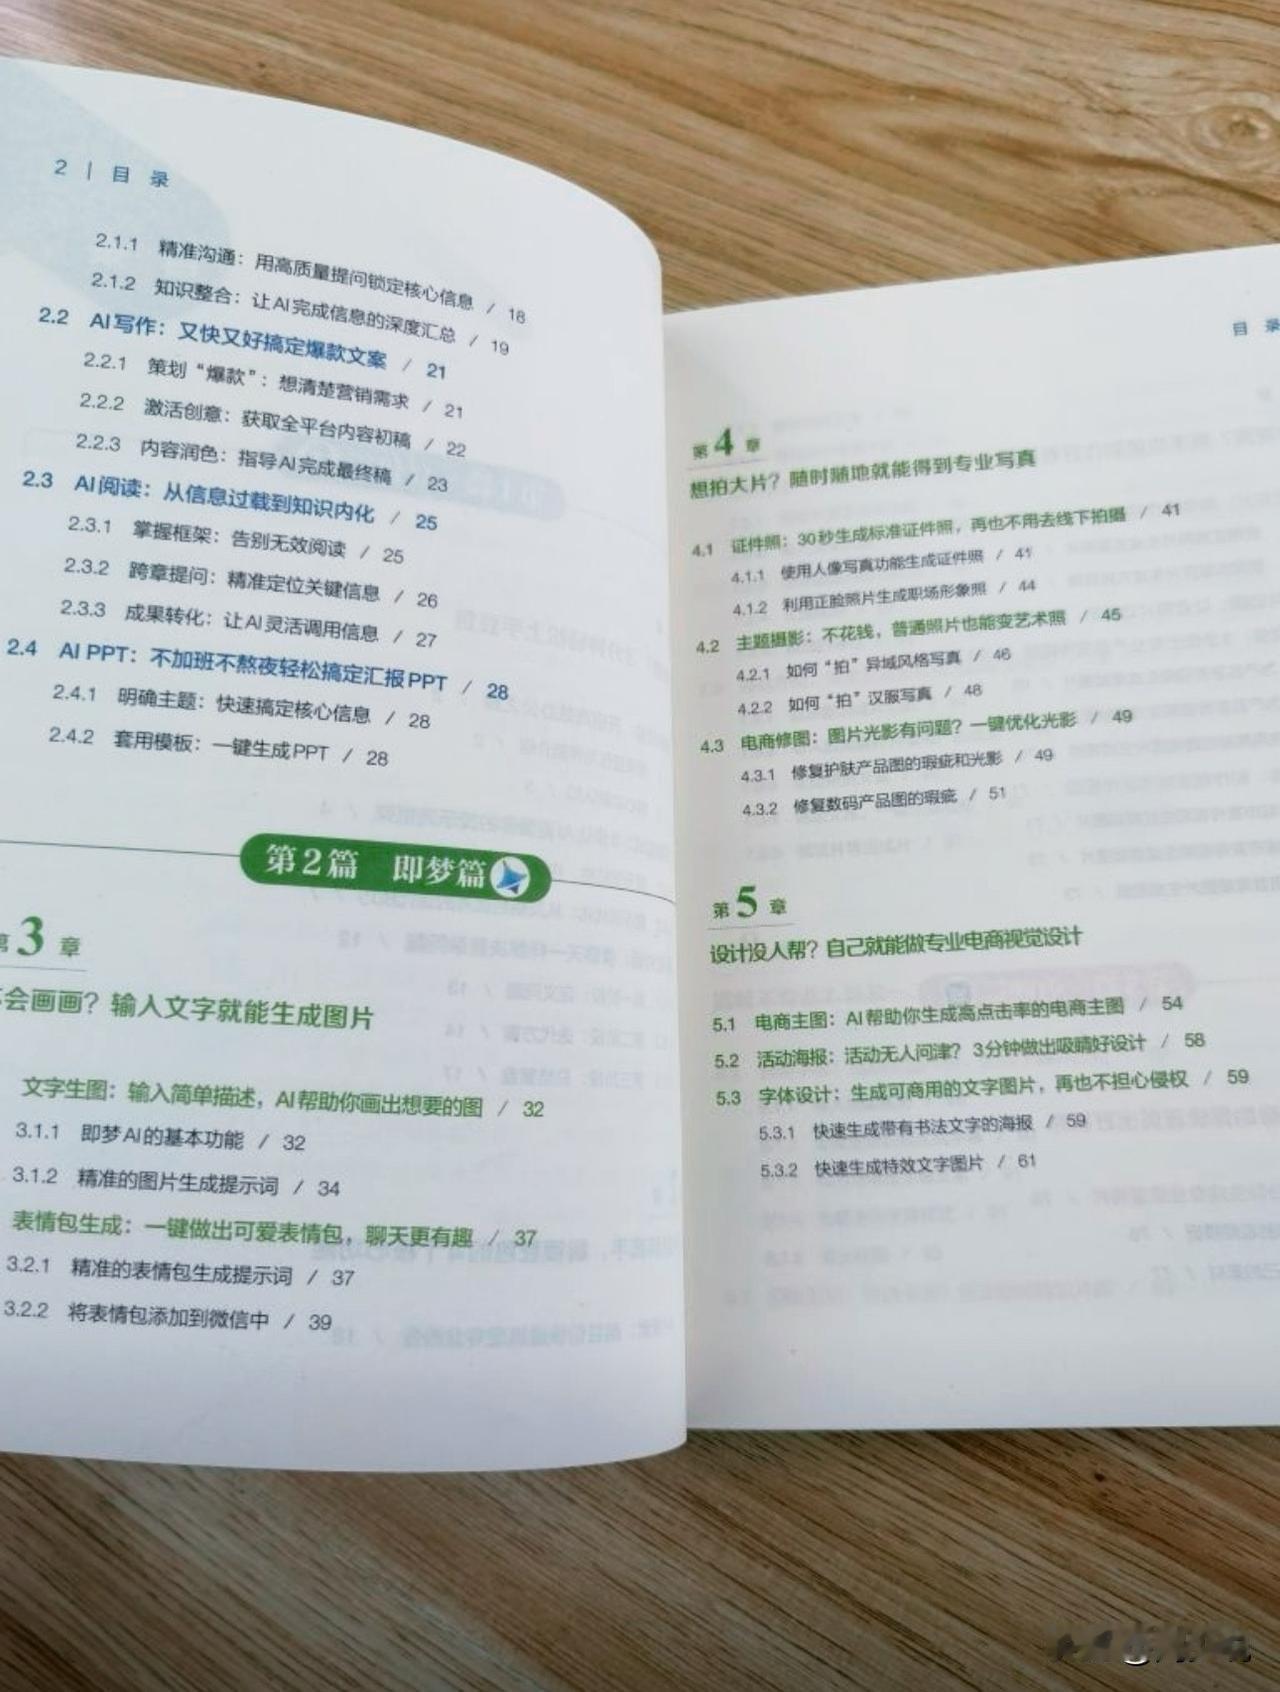 2 | 目 录
2.1.1 精准沟通：用高质量提问锁定核心信息 / 18
2.1.2 知识整合：让AI完成信息的深度汇总 / 19
2.2 AI写作：又快又好搞定爆款文案 / 21
2.2.1 策划“爆款”：想清楚营销需求 / 21
2.2.2 激活创意：获取全平台内容初稿 / 22
2.2.3 内容润色：指导AI完成最终稿 / 23
2.3 AI阅读：从信息过载到知识内化 / 25
2.3.1 掌握框架：告别无效阅读 / 25
2.3.2 跨章提问：精准定位关键信息 / 26
2.3.3 成果转化：让AI灵活调用信息 / 27
2.4 AI PPT：不加班不熬夜轻松搞定汇报PPT / 28
2.4.1 明确主题：快速搞定核心信息 / 28
2.4.2 套用模板：一键生成PPT / 28
第2篇 即梦篇
第3章
会画画？输入文字就能生成图片
文字生图：输入简单描述，AI帮助你画出想要的图 / 32
3.1.1 即梦AI的基本功能 / 32
3.1.2 精准的图片生成提示词 / 34
表情包生成：一键做出可爱表情包，聊天更有趣 / 37
3.2.1 精准的表情包生成提示词 / 37
3.2.2 将表情包添加到微信中 / 39
目 录
第4章
想拍大片？随时随地就能得到专业写真
4.1 证件照：30秒生成标准证件照，再也不用去线下拍摄 / 41
4.1.1 使用人像写真功能生成证件照 / 41
4.1.2 利用正脸照片生成职场形象照 / 44
4.2 主题摄影：不花钱，普通照片也能变艺术照 / 45
4.2.1 如何“拍”异域风格写真 / 46
4.2.2 如何“拍”汉服写真 / 48
4.3 电商修图：图片光影有问题？一键优化光影 / 49
4.3.1 修复护肤产品图的瑕疵和光影 / 49
4.3.2 修复数码产品图的瑕疵 / 51
第5章
设计没人帮？自己就能做专业电商视觉设计
5.1 电商主图：AI帮助你生成高点击率的电商主图 / 54
5.2 活动海报：活动无人问津？3分钟做出吸睛好设计 / 58
5.3 字体设计：生成可商用的文字图片，再也不担心侵权 / 59
5.3.1 快速生成带有书法文字的海报 / 59
5.3.2 快速生成特效文字图片 / 61